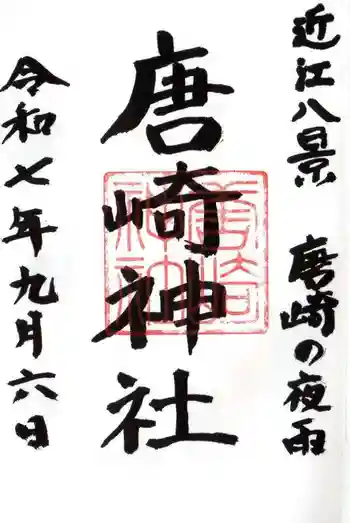 近江八景 唐崎の夜雨
唐崎神社
令和七年九月六日
唐崎
神社